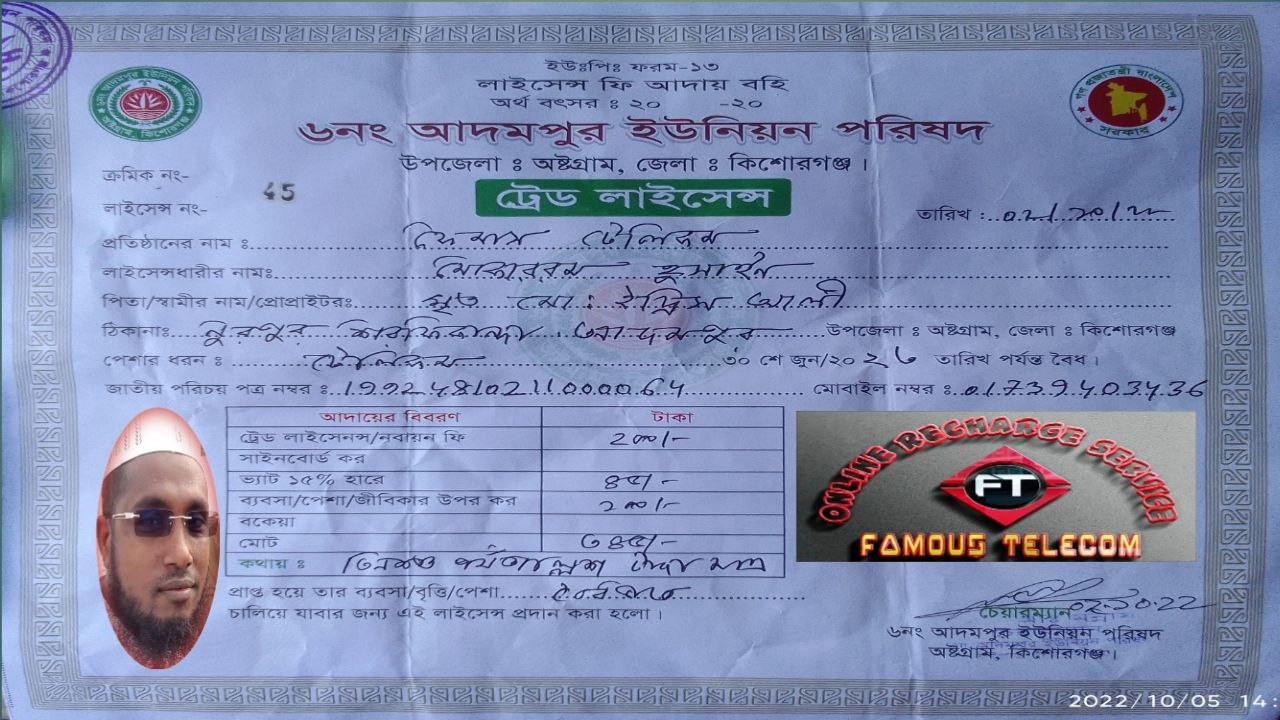 ইউঃপিঃ ফরম-১৩
লাইসেন্স ফি আদায় বহি
অর্থ বৎসর ঃ ২০ -২০
৬নং আদমপুর ইউনিয়ন পরিষদ
উপজেলা ঃ অষ্টগ্রাম, জেলা ঃ কিশোরগঞ্জ।
৬নং আদমপুর ইউনিয়ন পরিষদ
অষ্টগ্রাম, কিশোরগঞ্জ
গণ প্রজাতন্ত্রী বাংলাদেশ
সরকার
ক্রমিক নং- 45
ট্রেড লাইসেন্স
লাইসেন্স নং-
তারিখ :
প্রতিষ্ঠানের নাম ঃ ফেমাস টেলিকম
লাইসেন্সধারীর নামঃ মোকাররম হুসাইন
পিতা/স্বামীর নাম/প্রোপ্রাইটরঃ মৃত মো: ইদ্রিস আলী
ঠিকানাঃ নুরপুর আদমপুর উপজেলা ঃ অষ্টগ্রাম, জেলা ঃ কিশোরগঞ্জ
পেশার ধরন ঃ টেলিকম ৩০ শে জুন/২০২৩ তারিখ পর্যন্ত বৈধ।
জাতীয় পরিচয় পত্র নম্বর ঃ 19924810211000064 মোবাইল নম্বর ঃ 01739403436
আদায়ের বিবরণ টাকা
ট্রেড লাইসেনন্স/নবায়ন ফি ২০০/-
সাইনবোর্ড কর
ভ্যাট ১৫% হারে ৪৫/-
ব্যবসা/পেশা/জীবিকার উপর কর ২০০/-
বকেয়া
মোট ৩৪৫/-
কথায় ঃ তিনশত পয়তাল্লিশ টাকা মাত্র
প্রাপ্ত হয়ে তার ব্যবসা/বৃত্তি/পেশা
চালিয়ে যাবার জন্য এই লাইসেন্স প্রদান করা হলো।
ONLINE RECHARGE SERVICE
FT
FAMOUS TELECOM
02.10.22
চেয়ারম্যান
৬নং আদমপুর ইউনিয়ন পরিষদ
অষ্টগ্রাম, কিশোরগঞ্জ।
2022/10/05 14: